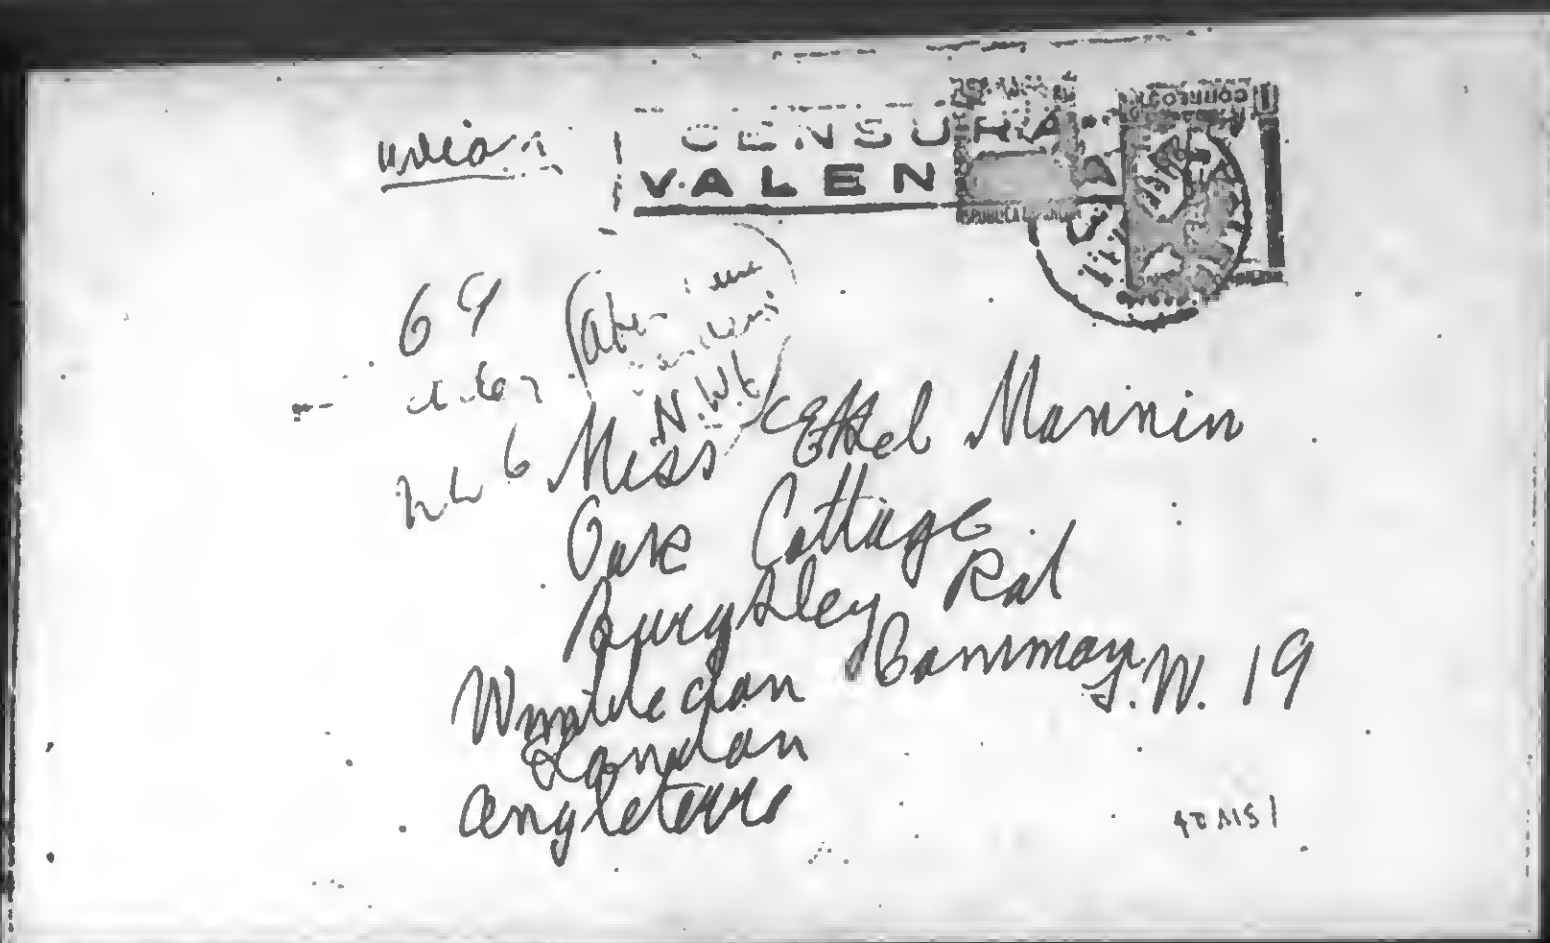 avion
CENSURA
VALEN
CORREOS
69
N.W.6
Miss Ethel Mannin
Oak Cottage
Burghley Rd
Wimbledon Common S.W. 19
London
Angleterre